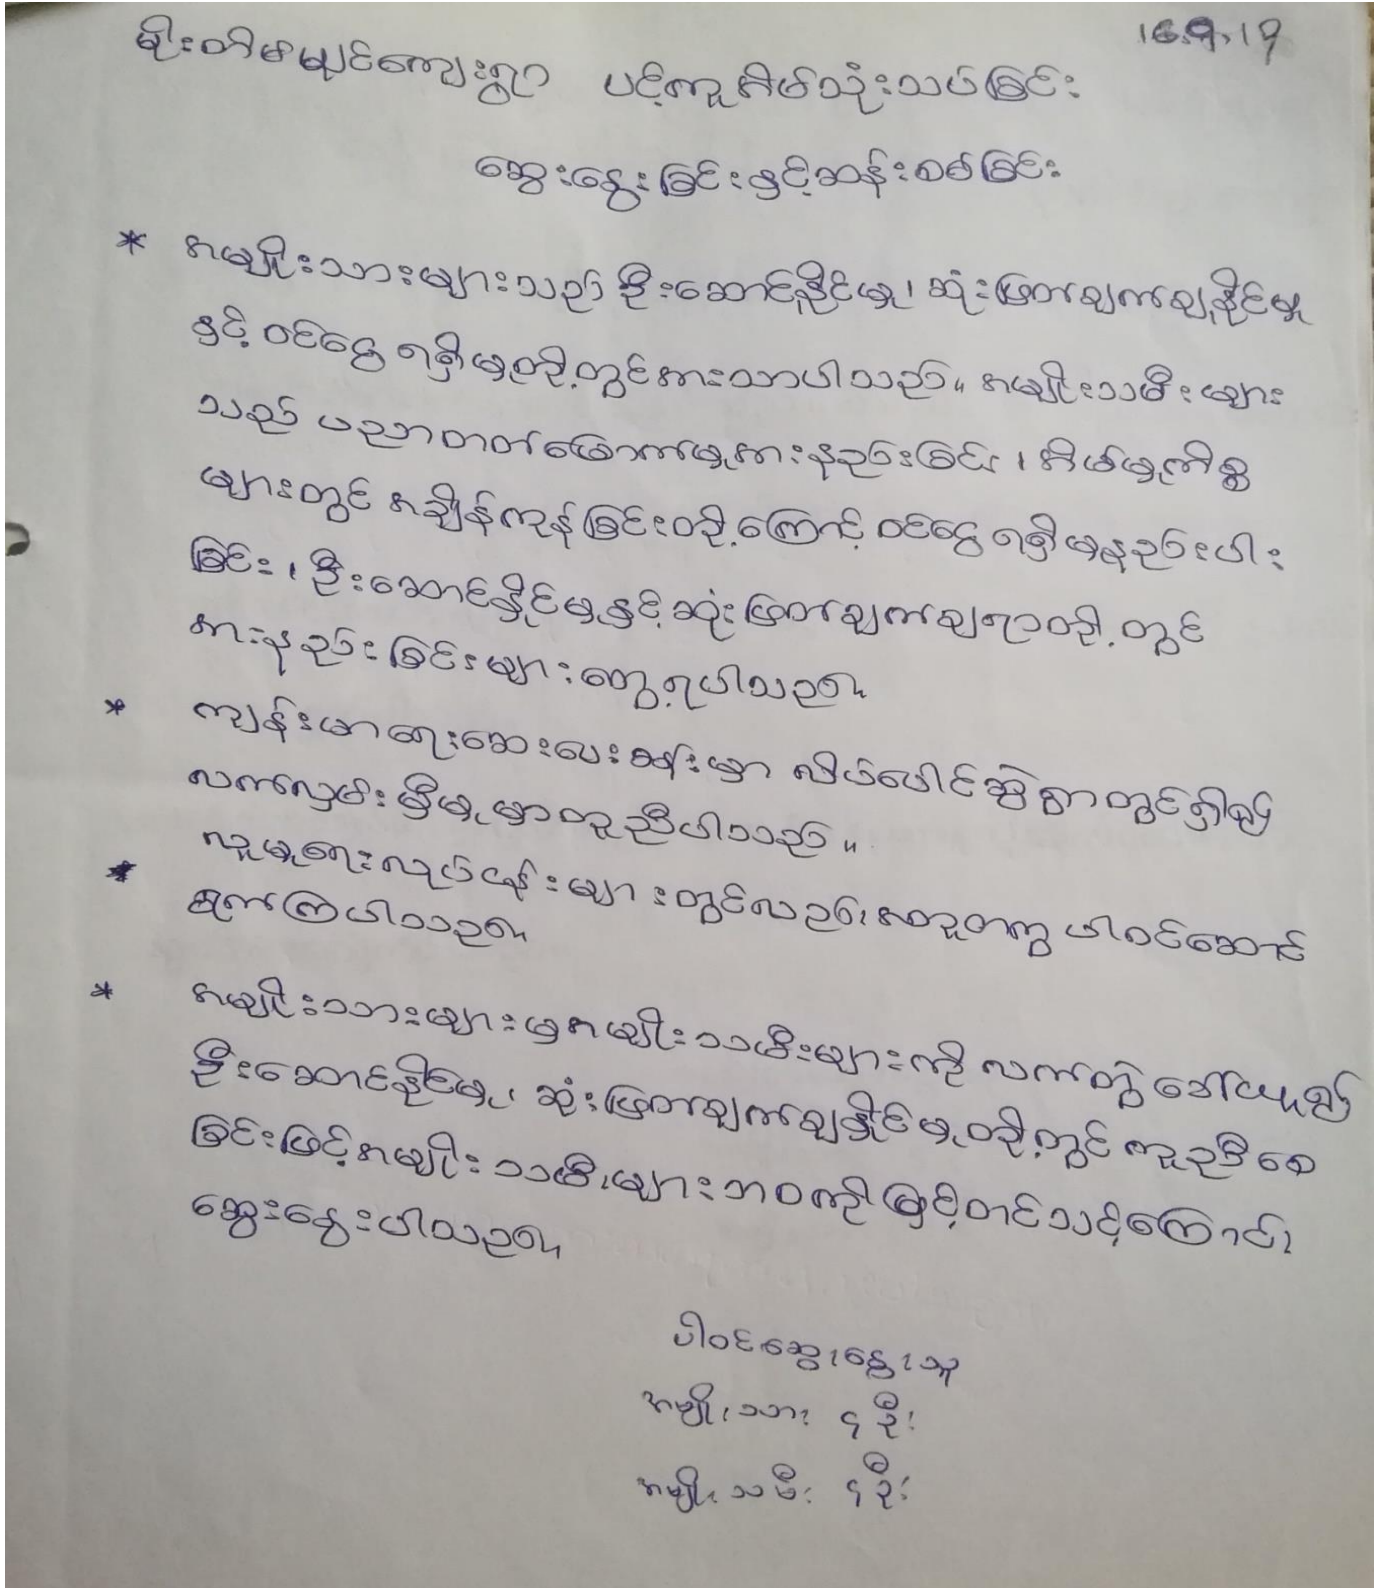 16.9.19
မိုးတိမ်ချင်ကျေးရွာ ပင့်ကူအိမ်သုံးသပ်ခြင်း
ဆွေးနွေးခြင်းနှင့်ဆန်းစစ်ခြင်း
* အမျိုးသားများသည် ဦးဆောင်နိုင်မှု၊ ဆုံးဖြတ်ချက်ချနိုင်မှု
နှင့် ဝင်ငွေ ရရှိမှုတို့တွင်အားသာပါသည်။ အမျိုးသမီးများ
သည် ပညာတတ်မြောက်မှုအားနည်းခြင်း၊ အိမ်မှုကိစ္စ
များတွင် အချိန်ကုန်ခြင်းတို့ကြောင့် ဝင်ငွေ ရရှိမှုနည်းပါး
ခြင်း၊ ဦးဆောင်နိုင်မှုနှင့် ဆုံးဖြတ်ချက်ချရာတို့တွင်
အားနည်းခြင်းများတွေ့ရပါသည်။
* ကျန်းမာရေးဆေးပေးခန်းမှာ လိပ်ပေါင်ဆွဲရွာတွင်ရှိ၍
လက်လှမ်းမှီမှုမှာတူညီပါသည်။
* လူမှုရေးလုပ်ငန်းများတွင်လည်းအတူတကွ ပါဝင်ဆောင်
ရွက်ကြပါသည်။
* အမျိုးသားများမှအမျိုးသမီးများကို လက်တွဲခေါ်ယူ၍
ဦးဆောင်နိုင်မှု၊ ဆုံးဖြတ်ချက်ချနိုင်မှုတို့တွင် ကူညီစေ
ခြင်းဖြင့်အမျိုးသမီးများဘဝကိုမြှင့်တင်သင့်ကြောင်း
ဆွေးနွေးပါသည်။
ပါဝင်ဆွေးနွေးသူ
အမျိုးသား ၄ ဦး
အမျိုးသမီး ၄ ဦး